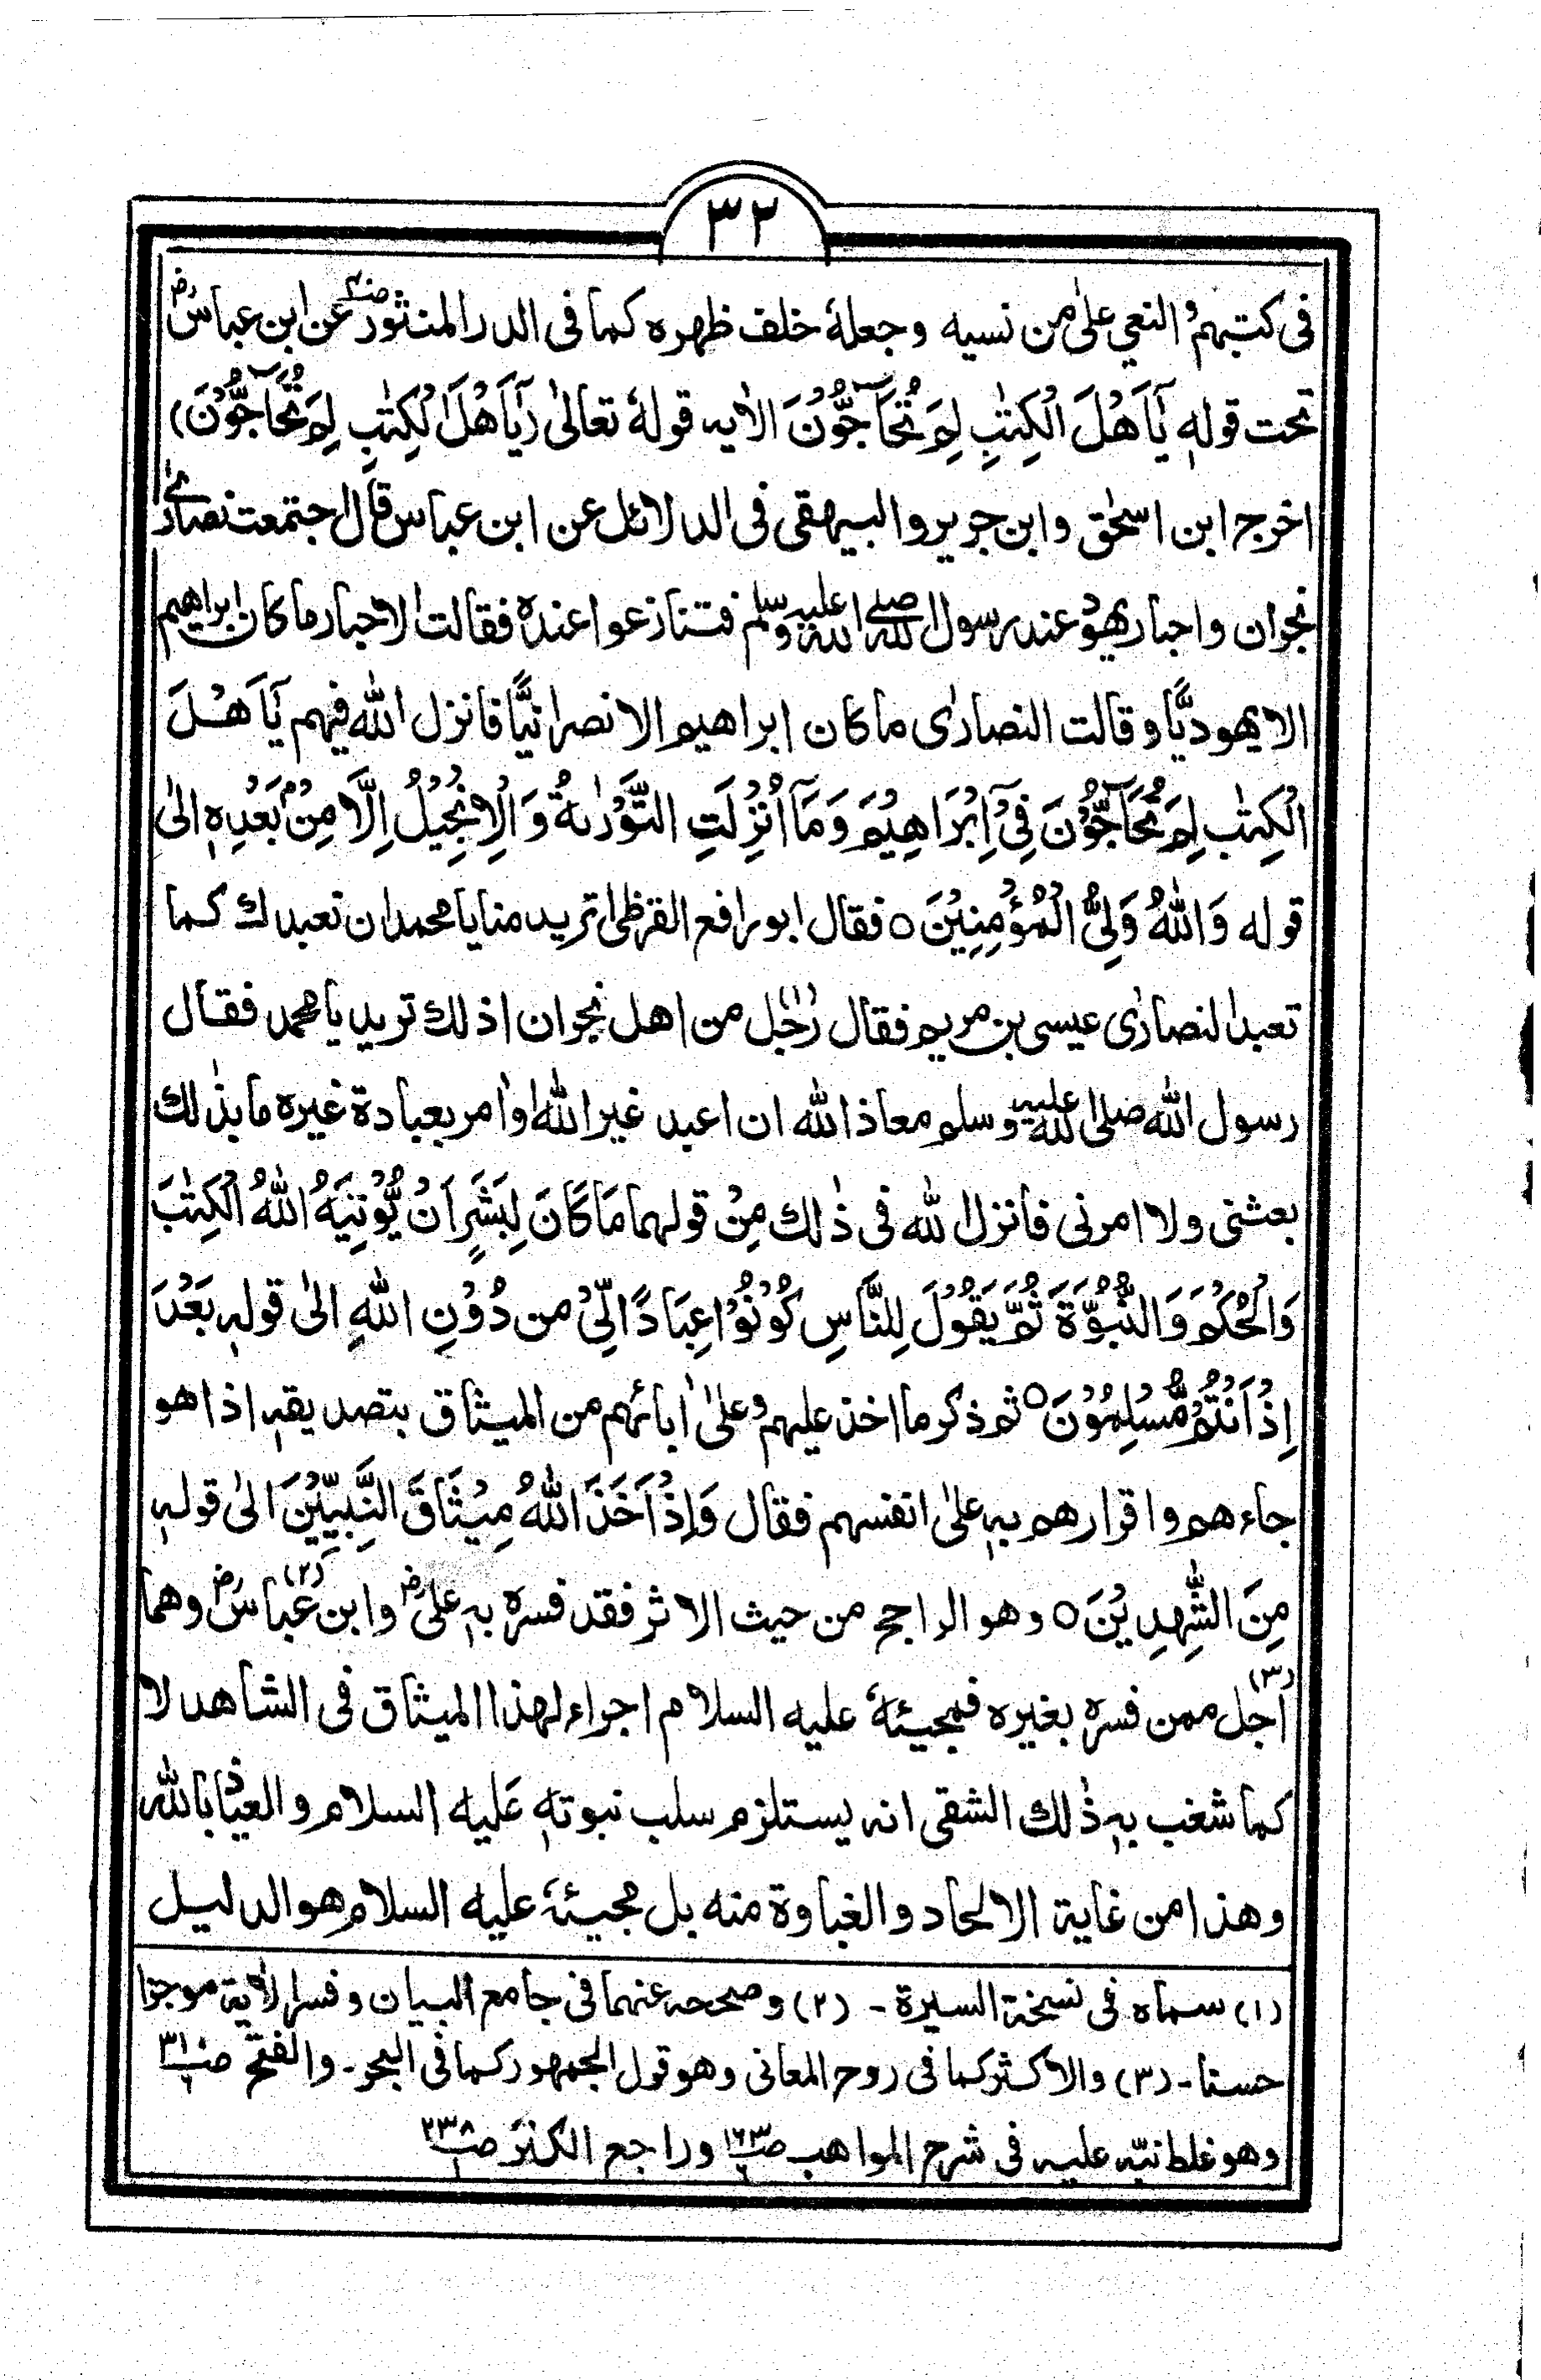 ٣٢
فی کتبهم والنعی علیٰ من نسیه وجعلهٗ خلف ظهره کما فی الدر المنثور عن ابن عباسؓ
تحت قولهٖ يٰٓاَهْلَ الْكِتٰبِ لِمَ تُحَآجُّوْنَ الاٰیه قولهٗ تعالیٰ (يٰٓاَهْلَ الْكِتٰبِ لِمَ تُحَآجُّوْنَ)
اخرج ابن اسحٰق وابن جریر والبیهقی فی الدلائل عن ابن عباس قال اجتمعت نصاریٰ
نجران واحبار یهود عند رسول الله صلی الله علیه وسلم فتنازعوا عنده فقالت الاحبار ما کان ابراهیم
الا یهودیًّا وقالت النصاریٰ ما کان ابراهیم الا نصرانیًّا فانزل الله فیهم يٰٓاَهْلَ
الْكِتٰبِ لِمَ تُحَآجُّوْنَ فِيْٓ اِبْرَاهِيْمَ وَمَآ اُنْزِلَتِ التَّوْرٰىةُ وَالْاِنْجِيْلُ اِلَّا مِنْۢ بَعْدِهٖ الیٰ
قوله وَاللّٰهُ وَلِيُّ الْمُؤْمِنِيْنَ ○ فقال ابو رافع القرظی اترید منا یا محمد ان نعبدك کما
تعبد النصاریٰ عیسی بن مریم فقال رجل (١) من اهل نجران اذلك ترید یا محمد فقال
رسول الله صلی الله علیه وسلم معاذ الله ان اعبد غیر الله او اٰمر بعبادة غیره ما بذٰلك
بعثنی ولا امرنی فانزل الله فی ذٰلك مِنْ قولهما مَا كَانَ لِبَشَرٍ اَنْ يُّؤْتِيَهُ اللّٰهُ الْكِتٰبَ
وَالْحُكْمَ وَالنُّبُوَّةَ ثُمَّ يَقُوْلَ لِلنَّاسِ كُوْنُوْا عِبَادًا لِّيْ من دُوْنِ اللّٰهِ الیٰ قولهٖ بَعْدَ
اِذْ اَنْتُمْ مُّسْلِمُوْنَ ○ ثم ذکر ما اخذ علیهم وعلیٰ اٰبائهم من المیثاق بتصدیقهٖ اذا هو
جاءهم واقرارهم بهٖ علیٰ انفسهم فقال وَاِذْ اَخَذَ اللّٰهُ مِيْثَاقَ النَّبِيّٖنَ الیٰ قولهٖ
مِنَ الشّٰهِدِيْنَ ○ وهو الراجح من حیث الاثر فقد فسره بهٖ علیؓ وابن عباسؓ (٢) وهما
اجل (٣) ممن فسره بغیره فمجیئهٗ علیه السلام اجراء لهذا المیثاق فی الشاهد لا
کما شغب بهٖ ذٰلك الشقی انه یستلزم سلب نبوتهٖ علیه السلام والعیاذ بالله
وهذا من غایة الالحاد والغباوة منه بل مجیئهٗ علیه السلام هو الدلیل
(١) سماه فی نسخة السیرة - (٢) وصححه عنهما فی جامع البیان وفسر الاٰیة موجزا
حسنا - (٣) والاکثر کما فی روح المعانی وهو قول الجمهور کما فی البحر - والفتح
وهو غلط نبّه علیه فی شرح المواهب ص١٦٣ وراجع الکنز ص٢٣٨